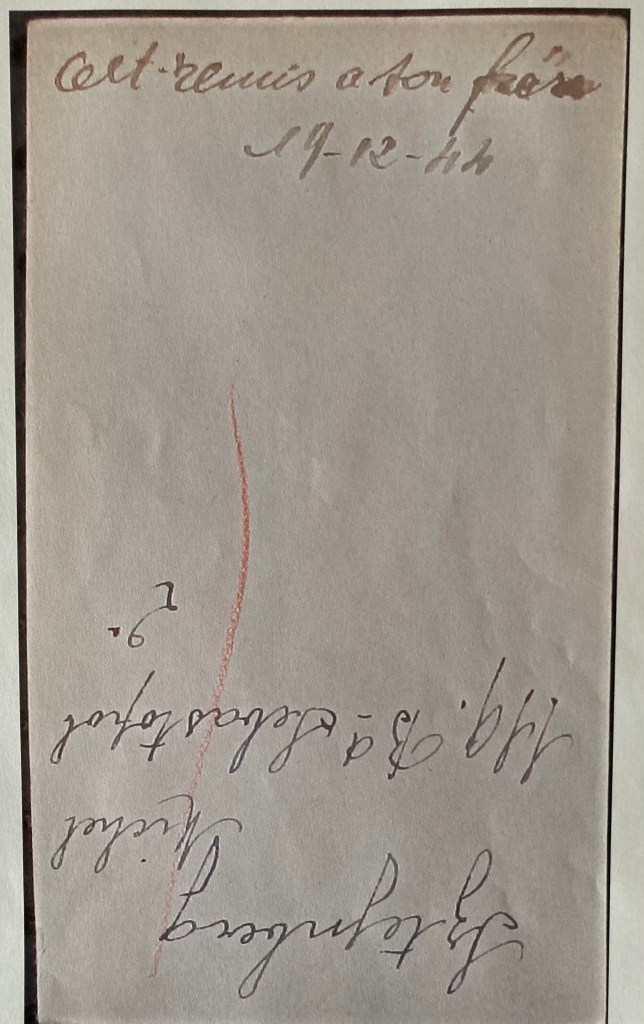 Cest remis a ton frère
19-12-44
Sztejnberg
Michel
119. Bd Sebastopol
2e